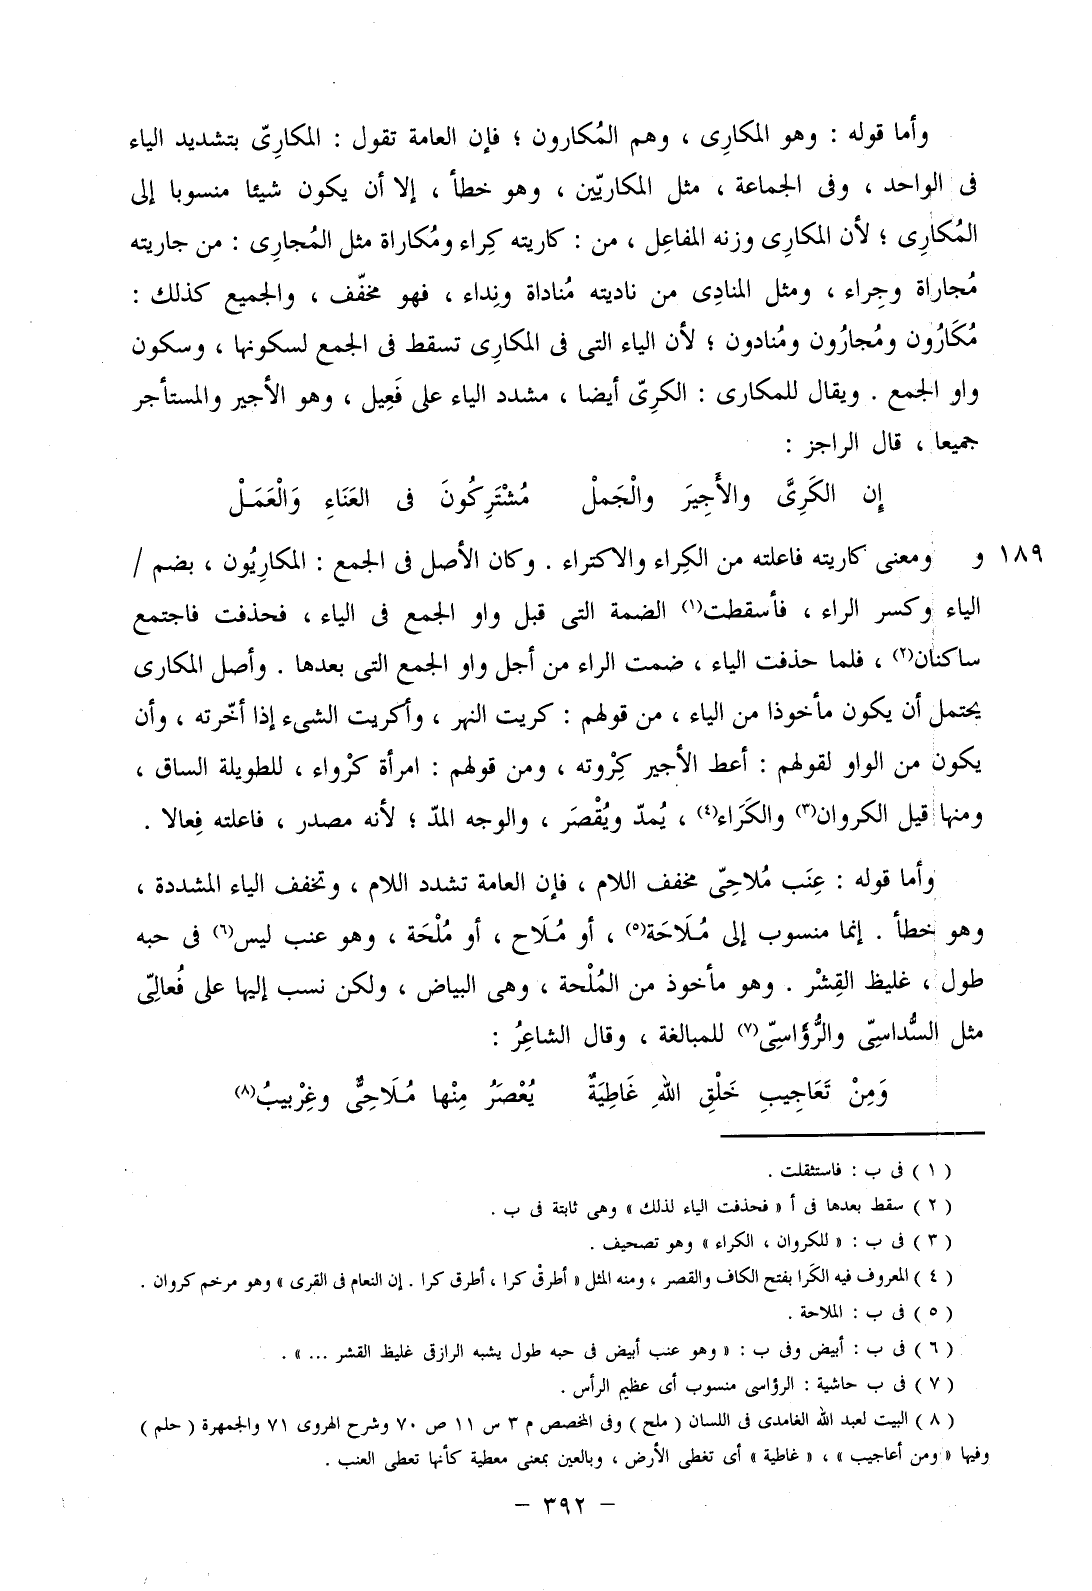 وأما قوله : وهو المكارِى ، وهم المُكارون ؛ فإن العامة تقول : المكارِىّ بتشديد الياء
فى الواحد ، وفى الجماعة ، مثل المكاريّين ، وهو خطأ ، إلا أن يكون شيئا منسوبا إلى
المُكارِى ؛ لأن المكارِى وزنه المفاعِل ، من : كاريته كِراء ومُكاراة مثل المُجارِى : من جاريته
مُجاراة وجِراء ، ومثل المنادِى من ناديته مُناداة ونِداء ، فهو مخفّف ، والجميع كذلك :
مُكَارُون ومُجارُون ومُنادون ؛ لأن الياء التى فى المكارِى تسقط فى الجمع لسكونها ، وسكون
واو الجمع . ويقال للمكارى : الكرِىّ أيضا ، مشدد الياء على فَعِيل ، وهو الأجير والمستأجر
جميعا ، قال الراجز :
إِن الكَرِىَّ والأَجِيرَ والْجَملْ مُشْتَرِكُونَ فى العَنَاءِ وَالْعَمَلْ
١٨٩ و ومعنى كاريته فاعلته من الكِراء والاكتراء . وكان الأصل فى الجمع : المكارِيُون ، بضم /
الياء وكسر الراء ، فأسقطت(١) الضمة التى قبل واو الجمع فى الياء ، فحذفت فاجتمع
ساكنان(٢) ، فلما حذفت الياء ، ضمت الراء من أجل واو الجمع التى بعدها . وأصل المكارى
يحتمل أن يكون مأخوذا من الياء ، من قولهم : كريت النهر ، وأكريت الشىء إذا أخّرته ، وأن
يكون من الواو لقولهم : أعط الأجير كِرْوته ، ومن قولهم : امرأة كرْواء ، للطويلة الساق ،
ومنها قيل الكروان(٣) والكَرَاء(٤) ، يُمدّ ويُقْصَر ، والوجه المدّ ؛ لأنه مصدر ، فاعلته فِعالا .
وأما قوله : عِنَب مُلاحِىّ مخفف اللام ، فإن العامة تشدد اللام ، وتخفف الياء المشددة ،
وهو خطأ . إنما منسوب إلى مُلَاحَة(٥) ، أو مُلَاح ، أو مُلْحَة ، وهو عنب ليس(٦) فى حبه
طول ، غليظ القِشْر . وهو مأخوذ من المُلْحة ، وهى البياض ، ولكن نسب إليها على فُعالِىّ
مثل السُّداسِىّ والرُّؤَاسِىّ(٧) للمبالغة ، وقال الشاعِرُ :
وَمِنْ تَعَاجِيبِ خَلْقِ اللهِ غَاطِيَةٌ يُعْصَرُ مِنْها مُلَاحِىٌّ وغِرْبيبُ(٨)
( ١ ) فى ب : فاستثقلت .
( ٢ ) سقط بعدها فى أ « فحذفت الياء لذلك » وهى ثابتة فى ب .
( ٣ ) فى ب : « للكروان ، الكراء » وهو تصحيف .
( ٤ ) المعروف فيه الكَرا بفتح الكاف والقصر ، ومنه المثل « أطرقْ كرا ، أطرق كرا . إن النعام فى القرى » وهو مرخم كروان .
( ٥ ) فى ب : الملاحة .
( ٦ ) فى ب : أبيض وفى ب : « وهو عنب أبيض فى حبه طول يشبه الرازقى غليظ القشر ... » .
( ٧ ) فى ب حاشية : الرؤاسى منسوب أى عظيم الرأس .
( ٨ ) البيت لعبد الله الغامدى فى اللسان ( ملح ) وفى المخصص م ٣ س ١١ ص ٧٠ وشرح الهروى ٧١ والجمهرة ( حلم )
وفيها « ومن أعاجيب » ، « غاطية » أى تغطى الأرض ، وبالعين بمعنى معطية كأنها تعطى العنب .
– ٣٩٢ –